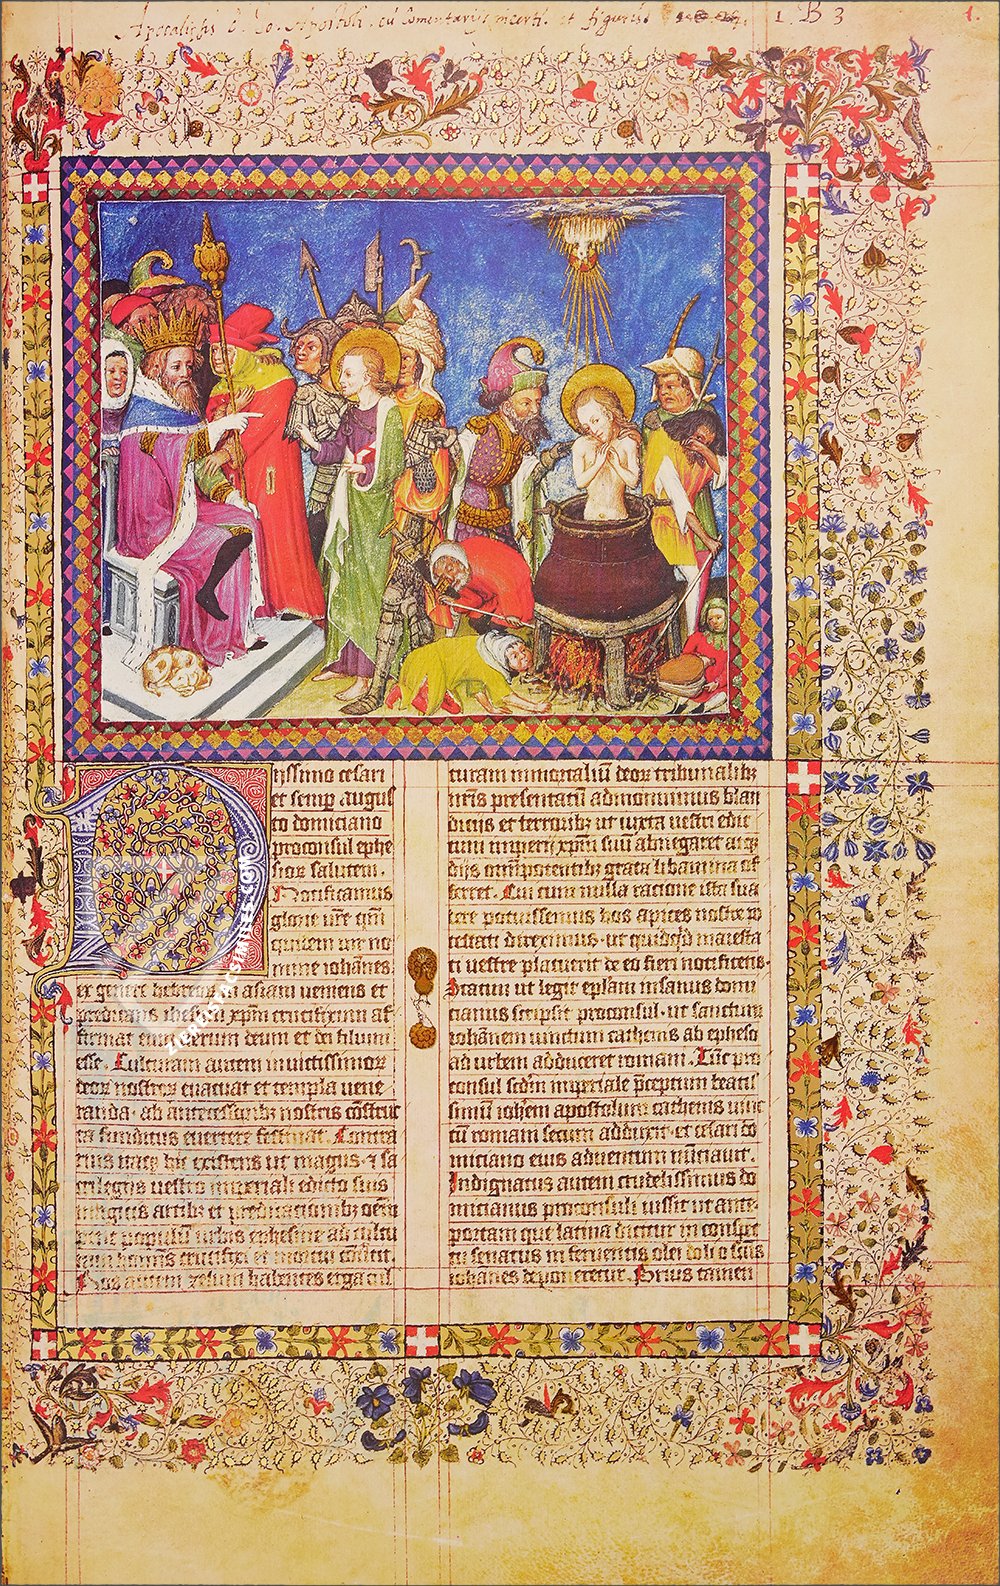 Apocalipsis b. Jo. Apostoli. cū Comentarijs incerti et figuris 1. B 3 1.
yssimo cesari
et semꝑ augus
to domiciano
proconsul ephe
sior salutem.
Notificamus
glorie vr̄e qm̄
quidem vir no
mine iohānes
ex genere hebreor in asiam ueniens et
predicans ihesum xp̄m crucifixum af
firmat eum uerum deum et dei filium
esse. Culturam autem inuictissimor
deor nostror euacuat et templa uene
randa ab antecessoribꝫ nostris cōstruc
ta funditus euertere festinat. Contra
rius existens ut magus ⁊ sa
crilegus vestro imperiali edicto suis
magicis artibꝫ et predicationibꝫ oēm
pene populum urbis ephesine ad cultu
ram hominis crucifixi et mortui
Nos autem zelum habentes erga cul
turam immortaliū deor tribunalibꝫ
nr̄is presentatū admonuimus blan
dicijs et terroribꝫ ut iuxta vestri edic
tum imperij xp̄m suū abnegaret atqꝫ
dijs omp̄otentibꝫ grata libamina of
ferret. Cui cum nulla racione ista sua
dere potuissemus hos apices nostre
direximus ut quidquid maiesta
ti vestre placuerit de eo fieri notificetis.
Statim ut legit ep̄lam insanus domi
cianus scripsit proconsul ut sanctum
iohānem uinctum cathenis ab epheso
ad urbem adduceret romam. Tūc pro
consul scd̄m imperiale p̄ceptum beatis
simū ioh̄em apostolum cathenis uinc
tū romam secum adduxit et cesari do
miciano eius aduentum nūciauit.
Indignatus autem crudelissimus do
micianus proconsuli iussit ut ante
portam que latina dicitur in conspec
tu senatus in feruentis olei dolio
iohānes deponeretur. Prius tamen
ZIEREIS FACSIMILES